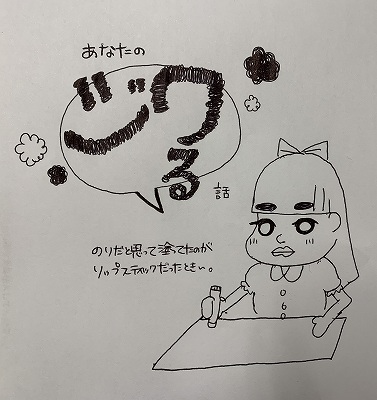 あなたの
ジワる
話
のりだと思って塗ってたのが
リップスティックだったときい。